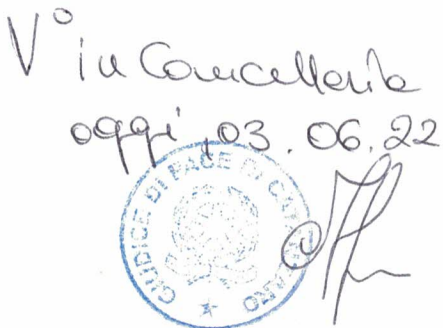 V° in Cancelleria
oggi, 03.06.22
GIUDICE DI PACE DI CATANZARO